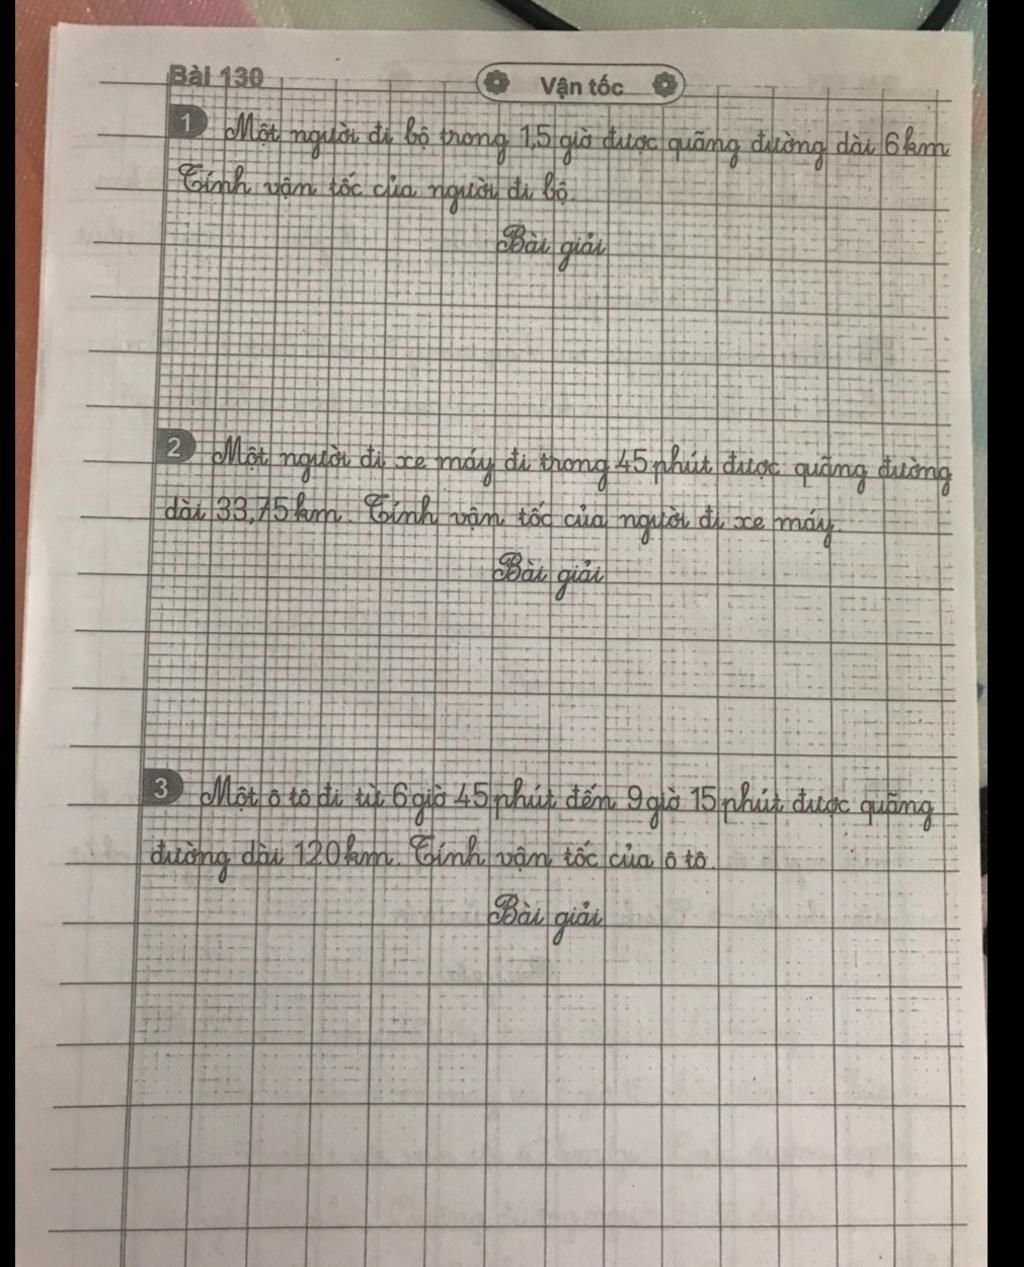 Bài 130
Vận tốc
1 Một người đi bộ trong 1,5 giờ được quãng đường dài 6km
Tính vận tốc của người đi bộ.
Bài giải
2 Một người đi xe máy đi trong 45 phút được quãng đường
dài 33,75km. Tính vận tốc của người đi xe máy.
Bài giải
3 Một ô tô đi từ 6 giờ 45 phút đến 9 giờ 15 phút được quãng
đường dài 120km. Tính vận tốc của ô tô.
Bài giải